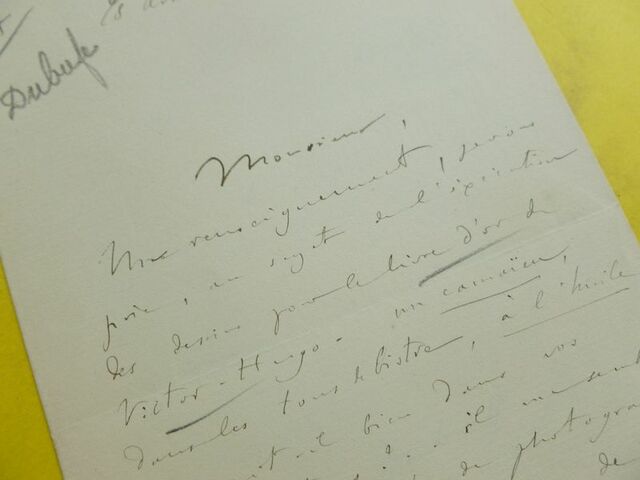 Dubufe
Monsieur,
Un renseignement, je vous
prie, au sujet de l'exécution
des dessins pour le livre d'or de
Victor-Hugo - un camaïeu,
dans les tons de bistre, à l'huile
il bien dans vos
il me semble
de photogra
de